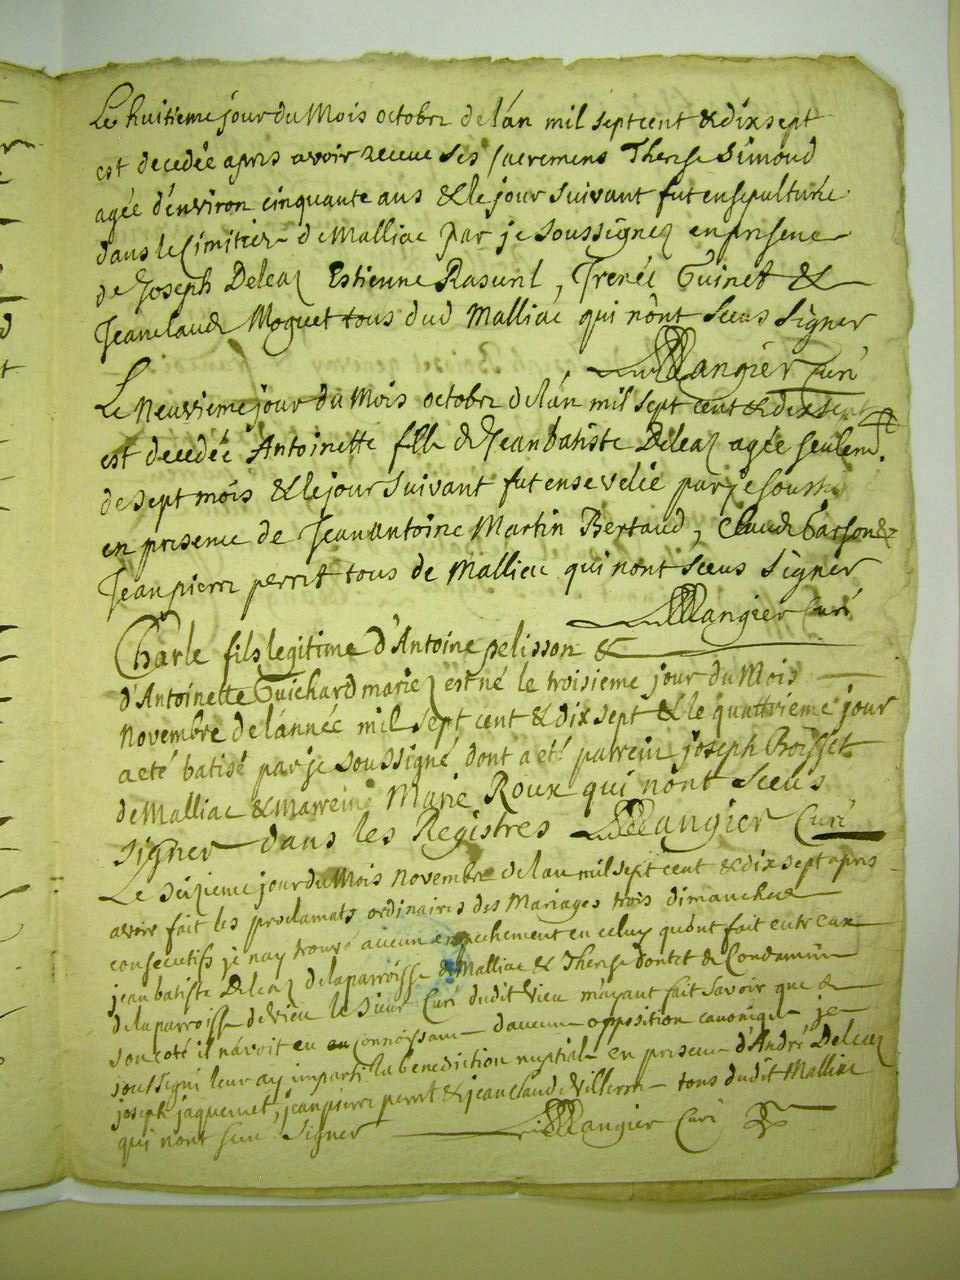 Le huitieme jour du Mois octobre de lán mil sept cent & dix sept
est decedée apres avoir receue ses sacremens Therese Simond
agée d'environ cinquante ans & le jour suivant fut ensepulturée
dans le Cimitier de Malliac par je soussignez en presence
de Joseph Deleaz Estienne Rasuril, Irenée Guinet &
Jeanclaude Moguet tous dud Malliac qui n'ont sceus signer
Mangier Curé
Le Neuvieme jour du Mois octobre de lán mil sept cent & dix sept
est decedée Antoinette fille de Jean batiste Deleaz agée seulem.
de sept mois & le jour suivant fut ensevelie par je souss
en presence de Jean antoine Martin Bertaud, Claude
Jean pierre perret tous de Malliac qui n'ont sceus signer
Mangier Curé
Charle fils legitime d'Antoine pelisson &
d'Antoinette Guichard mariez est né le troisieme jour du Mois
Novembre de lánnée mil sept cent & dix sept & le quattrieme jour
a eté batisé par je soussigné dont a eté patrein joseph Boisset
de Malliac & Marreine Marie Roux qui n'ont sceus
signer dans les Registres Mangier Curé
Le seizieme jour du Mois Novembre de lan mil sept cent & dix sept apres
avoir fait les proclamats ordinaires des Mariages trois dimanches
consecutifs je nay trouvé aucun empechement en celuy qu'ont fait entr eux
jean batiste Deleaz de la parroisse de Malliac & Therese dontet de Condamine
de la parroisse de vieu le sieur Curé dudit vieu m'ayant fait savoir que de
son coté il n'avoit eu connoissance d'aucune opposition canonique je
soussigné leur ay imparti la benediction nuptiale en presence d'André Deleaz
joseph jaquemet, jean pierre perret & jean claude Villerm tous dudit Malliac
qui n'ont sceu signer Mangier Curé